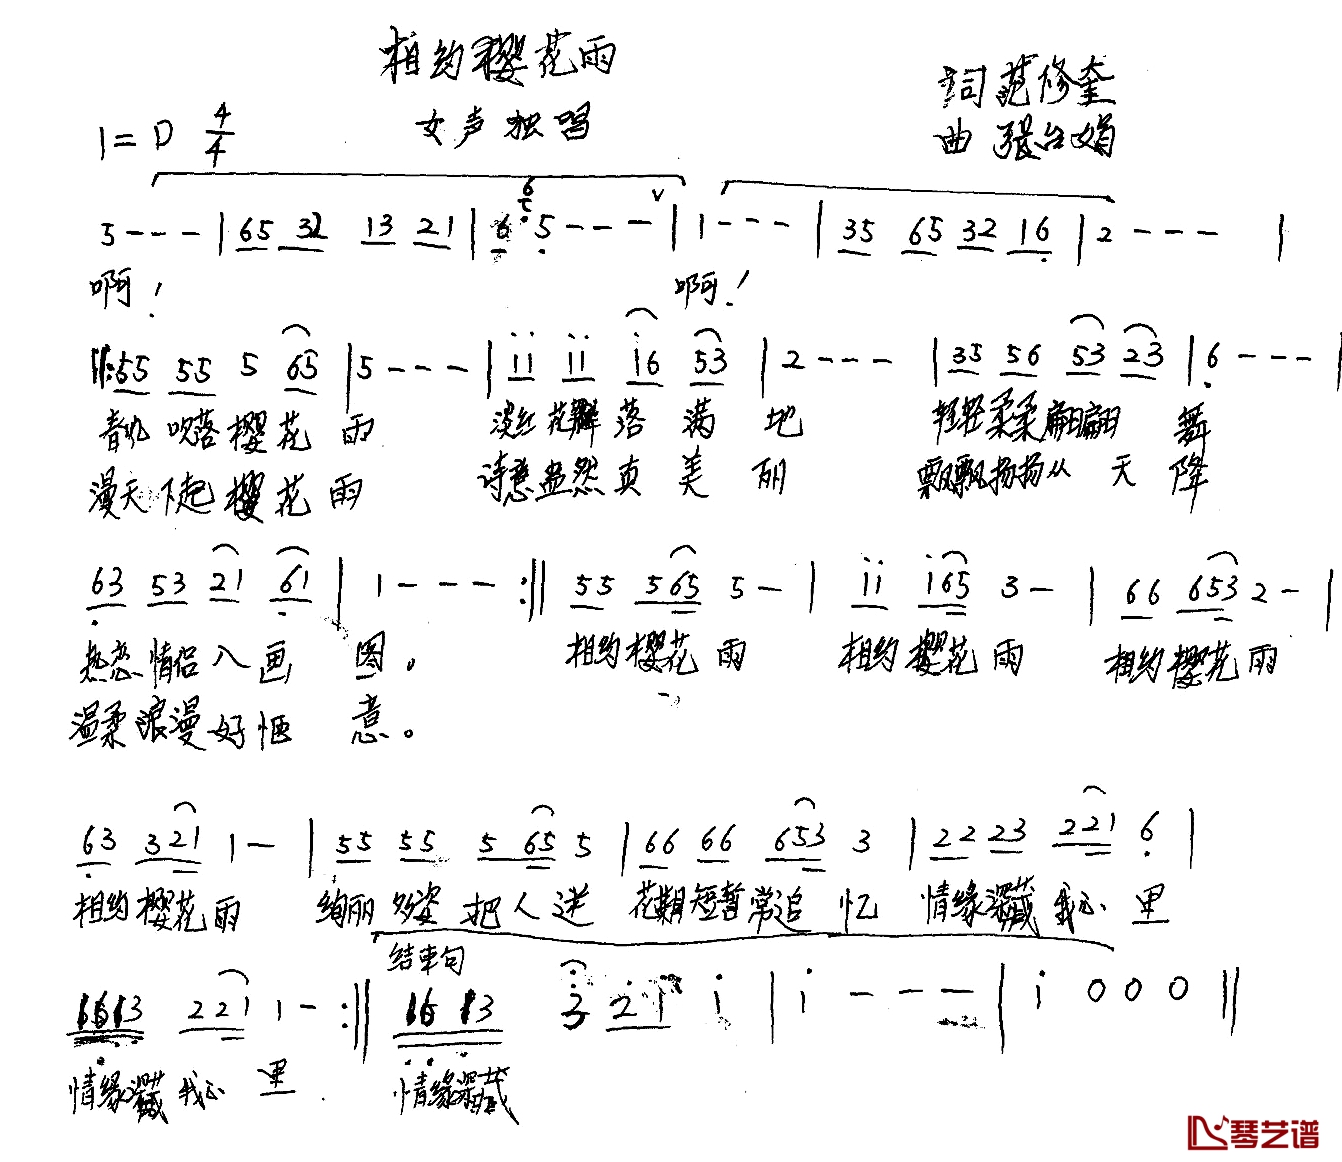 相约樱花雨
女声独唱
詞 范修奎
曲 張台娟
1=D 4/4
5 - - - | 65 32 13 21 | 6 5 - - - | 1 - - - | 35 65 32 16 | 2 - - - |
啊！ 啊！
||: 55 55 5 65 | 5 - - - | 11 11 16 53 | 2 - - - | 35 56 53 23 | 6 - - - |
春风 吹落樱花雨 淡红花瓣落满地 轻轻柔柔翩翩舞
漫天下起樱花雨 诗意盎然真美丽 飘飘扬扬从天降
63 53 21 61 | 1 - - - :|| 55 565 5 - | 11 165 3 - | 66 653 2 - |
热恋情侣入画图。 相约樱花雨 相约樱花雨 相约樱花雨
温柔浪漫好惬意。
63 321 1 - | 55 55 565 5 | 66 66 653 3 | 22 23 221 6 |
相约樱花雨 绚丽多姿把人迷 花期短暂常追忆 情缘深藏我心里
结束句
1613 221 1 - :|| 16 13 3 21 1 | 1 - - - | 1 0 0 0 ||
情缘深藏我心里 情缘深藏
琴艺谱